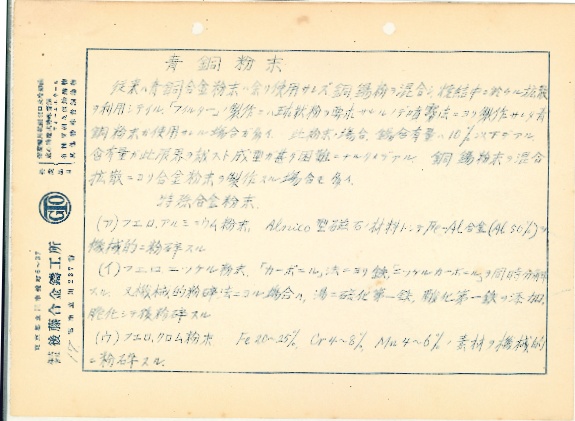 青銅粉末
従来ハ青銅合金粉末ハ余リ使用サレズ銅錫粉ヲ混合シ焼結中ニ於ケル拡散
ヲ利用シテイル。「フィルター」製作ニハ球状粉ヲ要求サレルノデ方法ニヨリ製作サレタ青
銅粉末ガ使用サレル場合ガ多イ。此粉末ノ場合、錫含有量ハ10%以下デアル。
含有量ガ此限界ヲ越スト成型ガ甚ダ困難ニナルタメデアル。銅錫粉末ヲ混合
拡散ニヨリ合金粉末ヲ製作スル場合モ多イ。
特殊合金粉末
(ア)フエロ,アルミニウム粉末. Alnico型磁石ノ材料トシテFe-Al合金(Al 50%)ヲ
機械的ニ粉砕スル
(イ)フエロ ニッケル粉末.「カーボニール」法ニヨリ鉄,「ニッケルカーボニール」ヲ同時分解
スル. 又機械的粉砕法ニヨル場合ハ, 湯ニ硫化第一鉄, 酸化第一鉄ヲ添加,
脆化シテ後粉砕スル
(ウ)フエロ,クロム粉末 Fe 20~25%, Cr 4~8%, Mn 4~6%ノ素材ヲ機械的
ニ粉砕スル.
GTO
後藤合金鋳工所